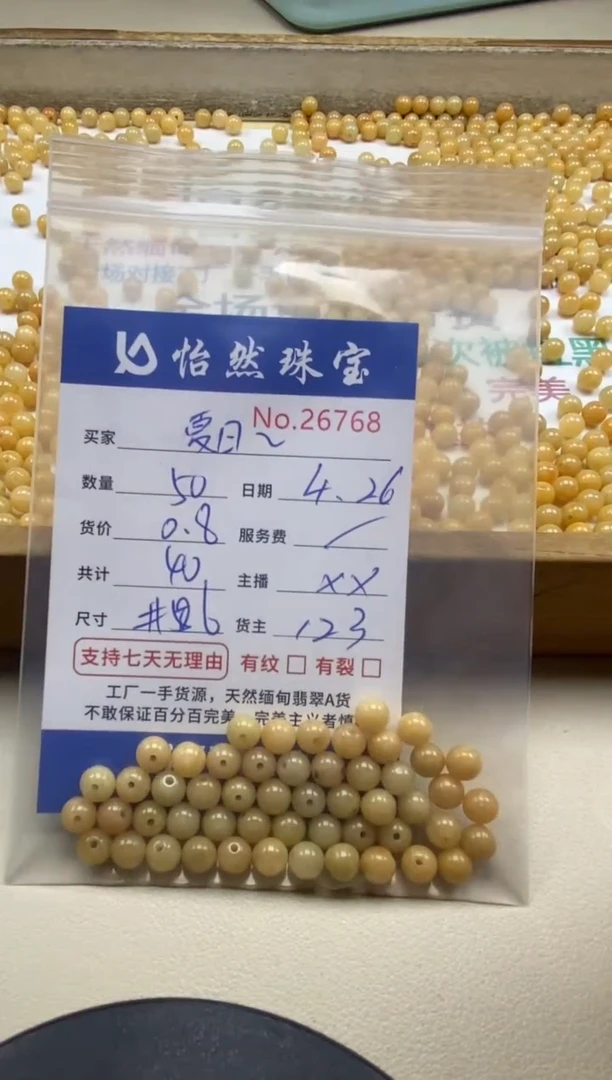 怡然珠宝
No.26768
买家 夏日~
数量 50 日期 4.26
货价 0.8 服务费 /
共计 40 主播 xx
尺寸 货主 123
支持七天无理由 有纹 有裂
工厂一手货源，天然缅甸翡翠A货
不敢保证百分百完美，完美主义者慎